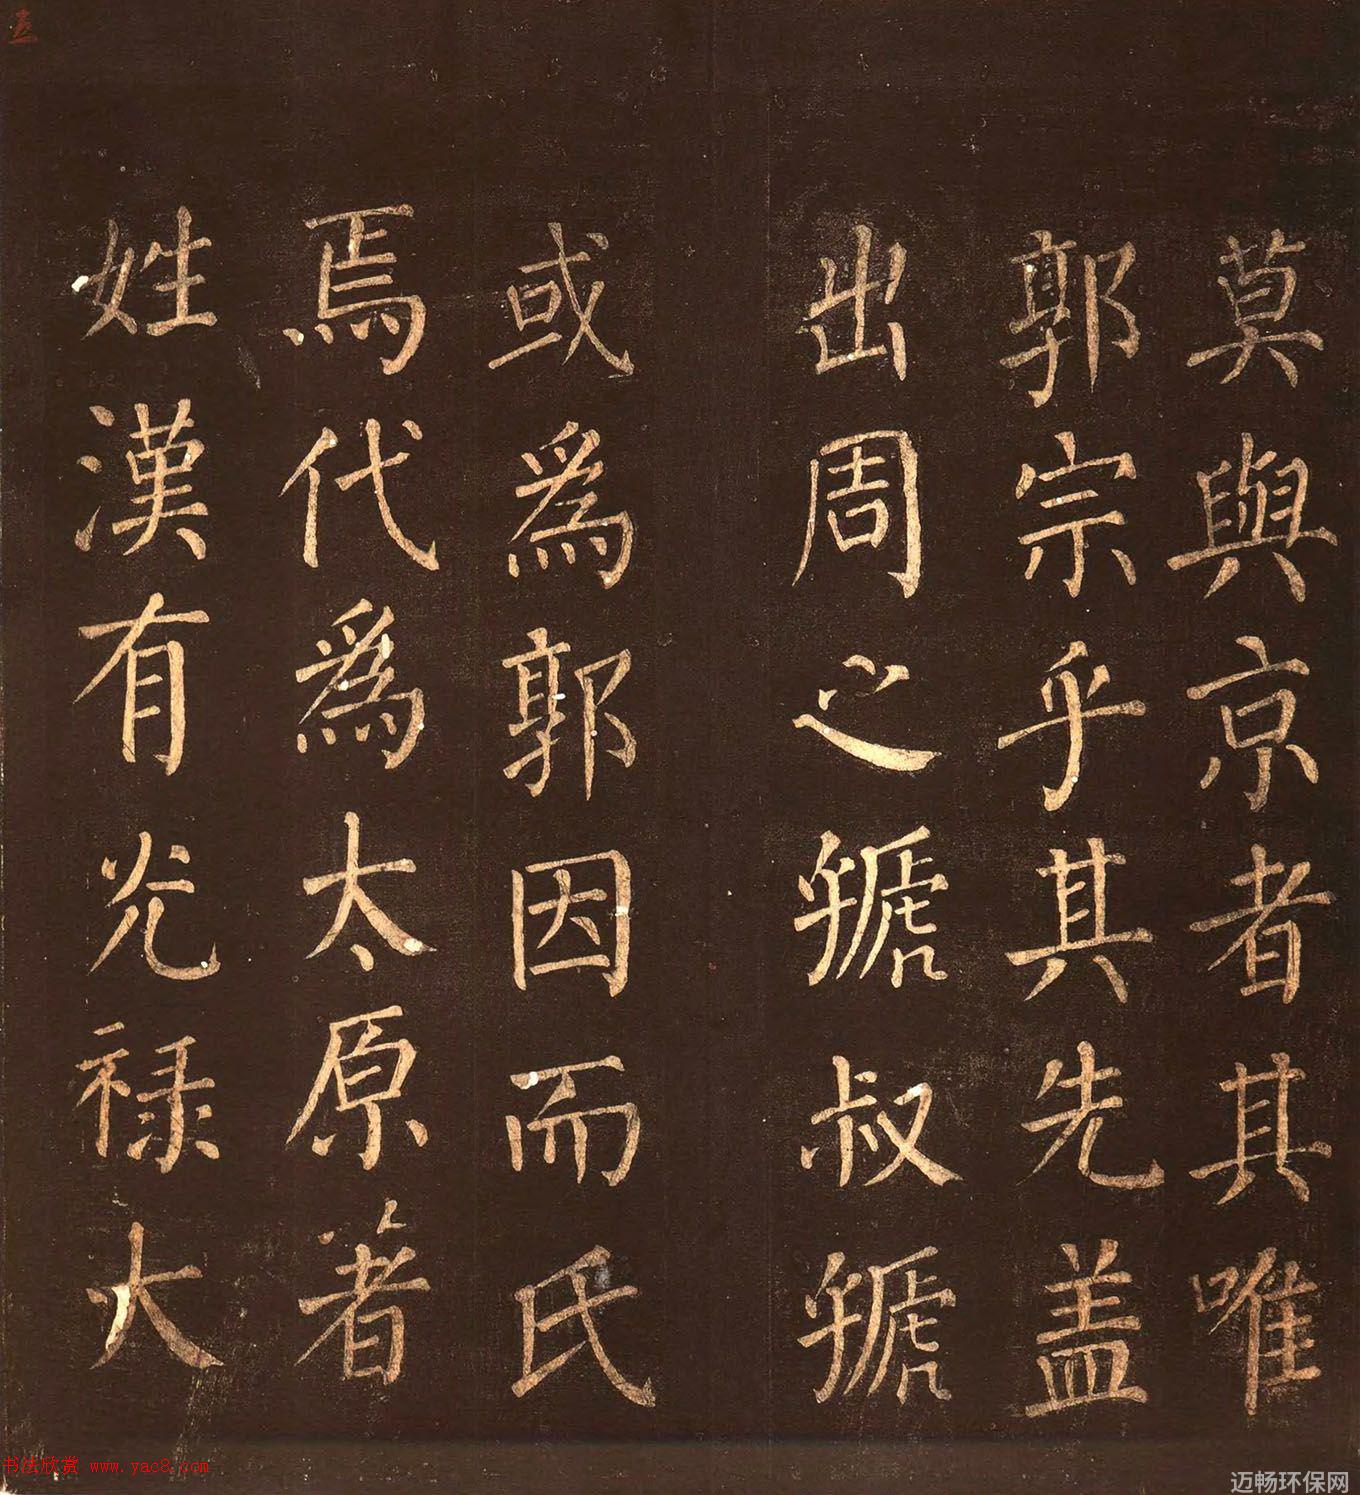 莫與京者其唯
郭宗乎其先盖
出周之虢叔虢
或為郭因而氏
焉代為太原著
姓漢有光禄大
书法欣赏 www.yac8.com
迈畅环保网